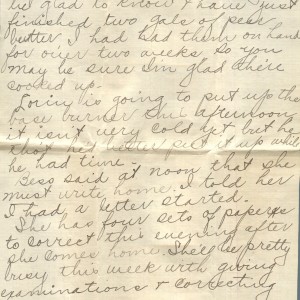 be glad to know I have just
finished two gals of pear
butter I had had them on hand
for over two weeks so you
may be sure I'm glad there
cooked up.
Loring is going to put up the
base burner this afternoon
it isn't very cold yet but he
thot he'd better put it up while
he had time.
Bess said at noon that she
must write home. I told her
I had a letter started.
She has four sets of papers
to correct this evening after
she comes home. She'll be pretty
busy this week with giving
examinations & correcting